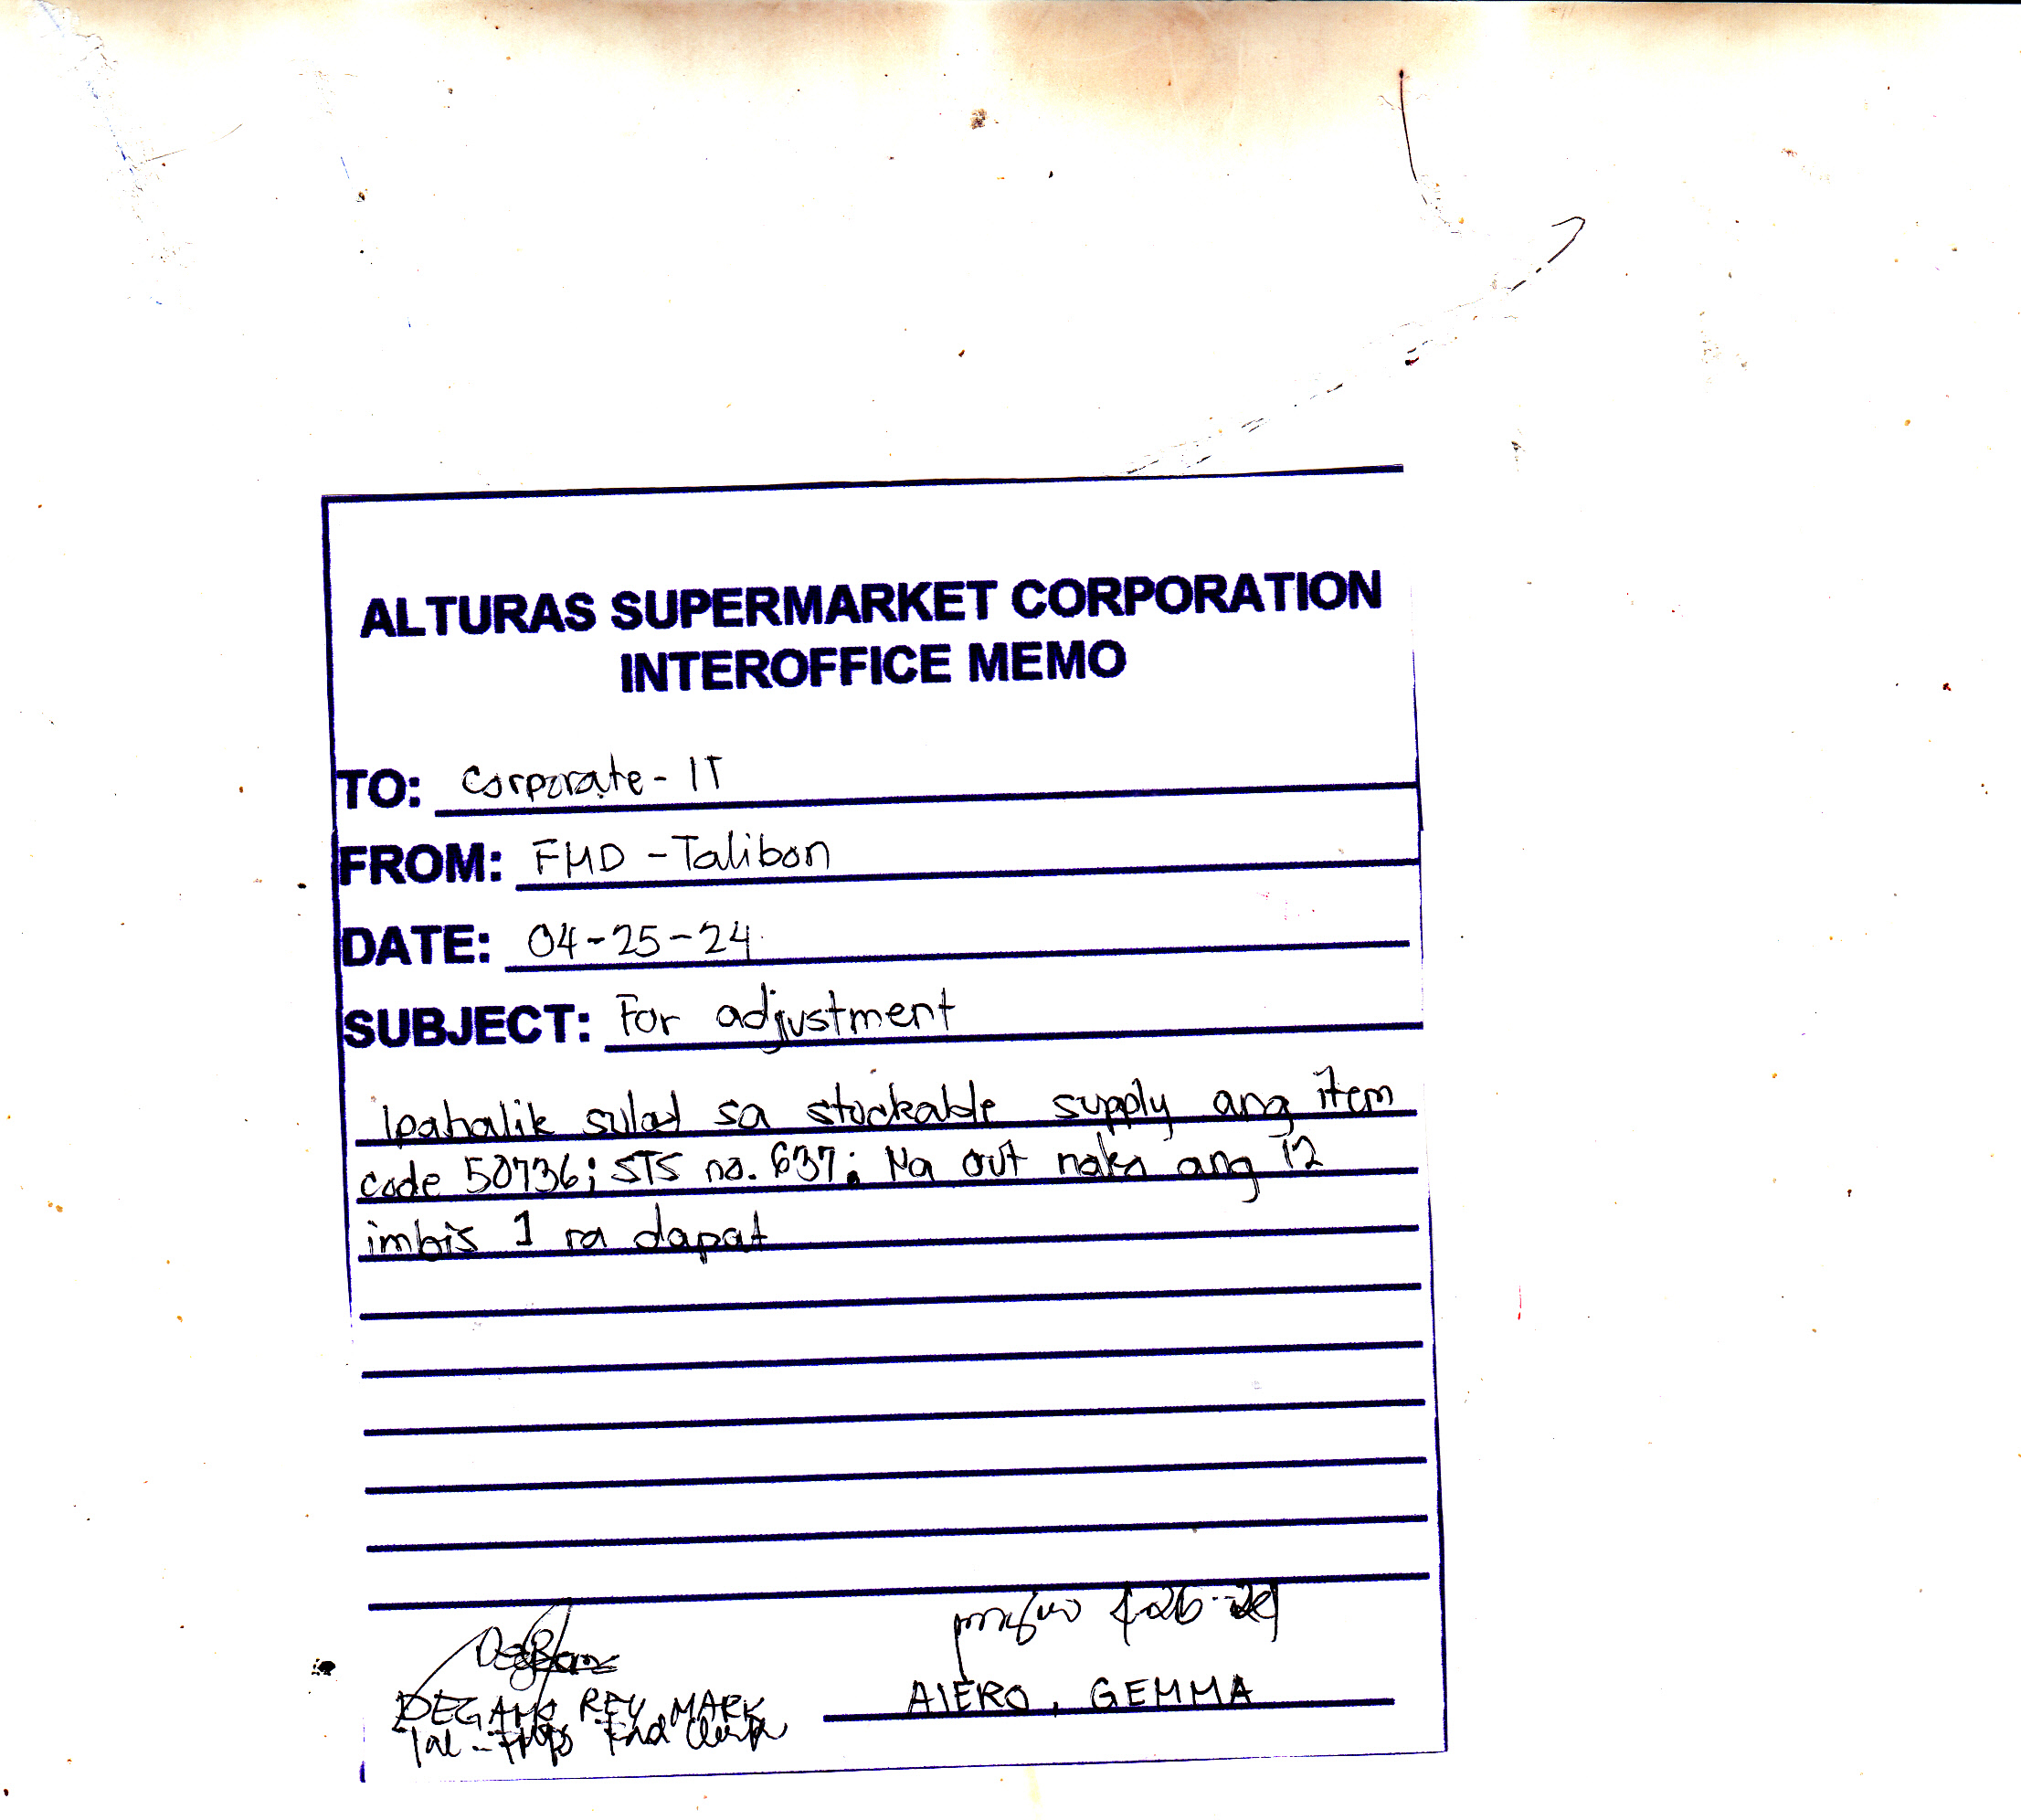 ALTURAS SUPERMARKET CORPORATION
INTEROFFICE MEMO
TO: Corporate - IT
FROM: FMD - Talibon
DATE: 04-25-24
SUBJECT: For adjustment
Ipabalik sulod sa stockable supply ang item
code 50736; STS no. 637; Na out nako ang 12
imbis 1 ra dapat
4-26-24
DEGAMO REY MARK AIERO, GEMMA
Tal - Fnd Clerk